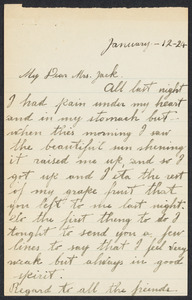 January - 12-24
My Dear Mrs. Jack.
All last night
I had pain under my heart
and in my stomack but
when this morning I saw
the beautiful sun shining
it raised me up, and so I
got up and I ate the rest
of my grape fruit that
you left to me last night.
So the first thing to do I
tought to send you a few
lines to say that I feel very
weak but always in good
spirit.
Regard to all the friends